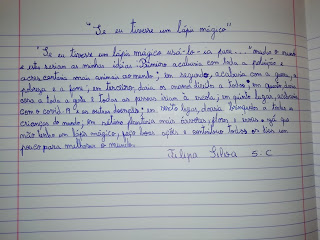 "Se eu tivesse um lápis mágico"
"Se eu tivesse um lápis mágico usá-lo-ia para... mudar o mundo
e estas seriam as minhas ideias. Primeiro acabaria com toda a poluição e
acrescentaria mais animais ao mundo; em segundo, acabaria com a guerra, a
pobreza e a fome; em terceiro, daria os mesmos direitos a todos; em quarto, daria
casa a toda a gente e todas as pessoas iriam à escola; em quinto lugar, acabaria
com o covid-19 e as outras doenças; em sexto lugar, daria brinquedos a todas as
crianças do mundo; em sétimo plantaria mais árvores, flores e ervas. E já que
não tenho um lápis mágico, faço boas ações e contribuo todos os dias um
pouco para melhorar o mundo.
Filipa Silva 5.C